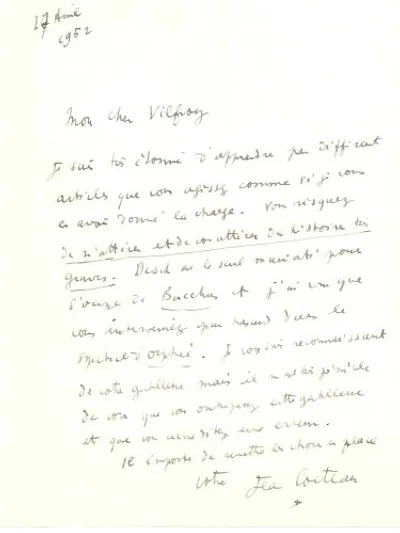 17 Avril
1952
Mon cher Vilfroy
Je suis très étonné d'apprendre par différent
articles que vous agissez comme si je vous
en avais donné la charge. Vous risquez
de m'attirer et de vous attirer des histoires très
graves. est le seul mandaté pour
s'occuper de Bacchus et j'ai vu que
vous interveniez par hasard dans le
spectacle d'Orphée. Je vous suis reconnaissant
de votre gentillesse mais il m'est pénible
de voir que vous outrepassez cette gentillesse
et que vous accréditez une erreur.
Il importe de remettre les choses en place
votre Jean Cocteau